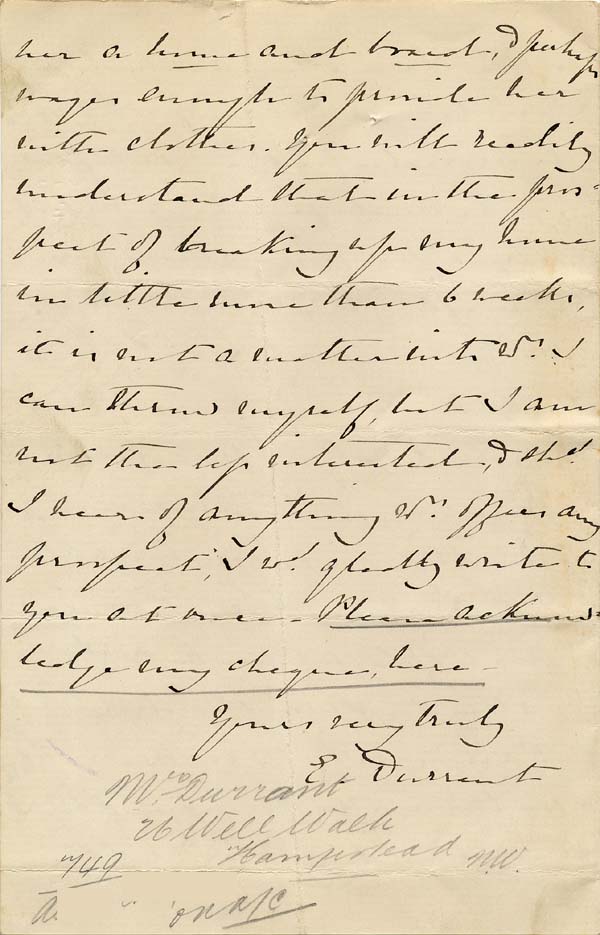 her a home and board, & perhaps
wages enough to provide her
with clothes. You will readily
understand that in the pros-
pect of breaking up my home
in little more than 6 weeks,
it is not a matter into wh I
can throw myself, but I am
not the less interested, & shd
I hear of anything wh offers any
prospect, I wd gladly write to
you at once – Please acknow-
ledge my cheque, here –
Yours very truly
E. Durrant
Mrs Durrant
26 Well Walk
Hampstead N.W.
749
on a/c